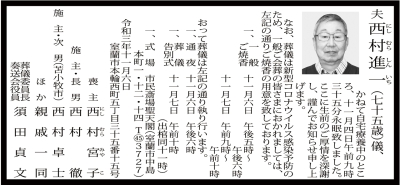 夫 西村進一(七十五歳)儀、
かねてより自宅療養中のところ、
十一月四日午前九時
三十五分永眠致しました。
ここに生前のご厚情を深謝
し、謹んでお知らせ申し上
げます。
なお、葬儀は新型コロナウイルス感染予防の
ため、一般ご会葬の皆さまにおかれましては、
左記の通りご焼香の用意を致しております。
一、一般 十一月六日 午後五時~
ご焼香 午後六時
十一月七日 午前十時
おって葬儀は左記の通り執り行います。
一、通夜 十一月六日 午後六時
一、葬儀 十一月七日 午前十時
告別式
(出棺同十一時)
一、式場 市民斎場聖天閣(室蘭市中島
本町一・十二・十四 T㊺3727)
令和三年十一月六日
室蘭市本輪西町五丁目二十五番十五号
喪主 西村宮子
施主・長男 西村徹
施主・次男(苫小牧市) 西村卓士
ほか 親戚一同
葬儀委員長
奏送会役員 須田貞文